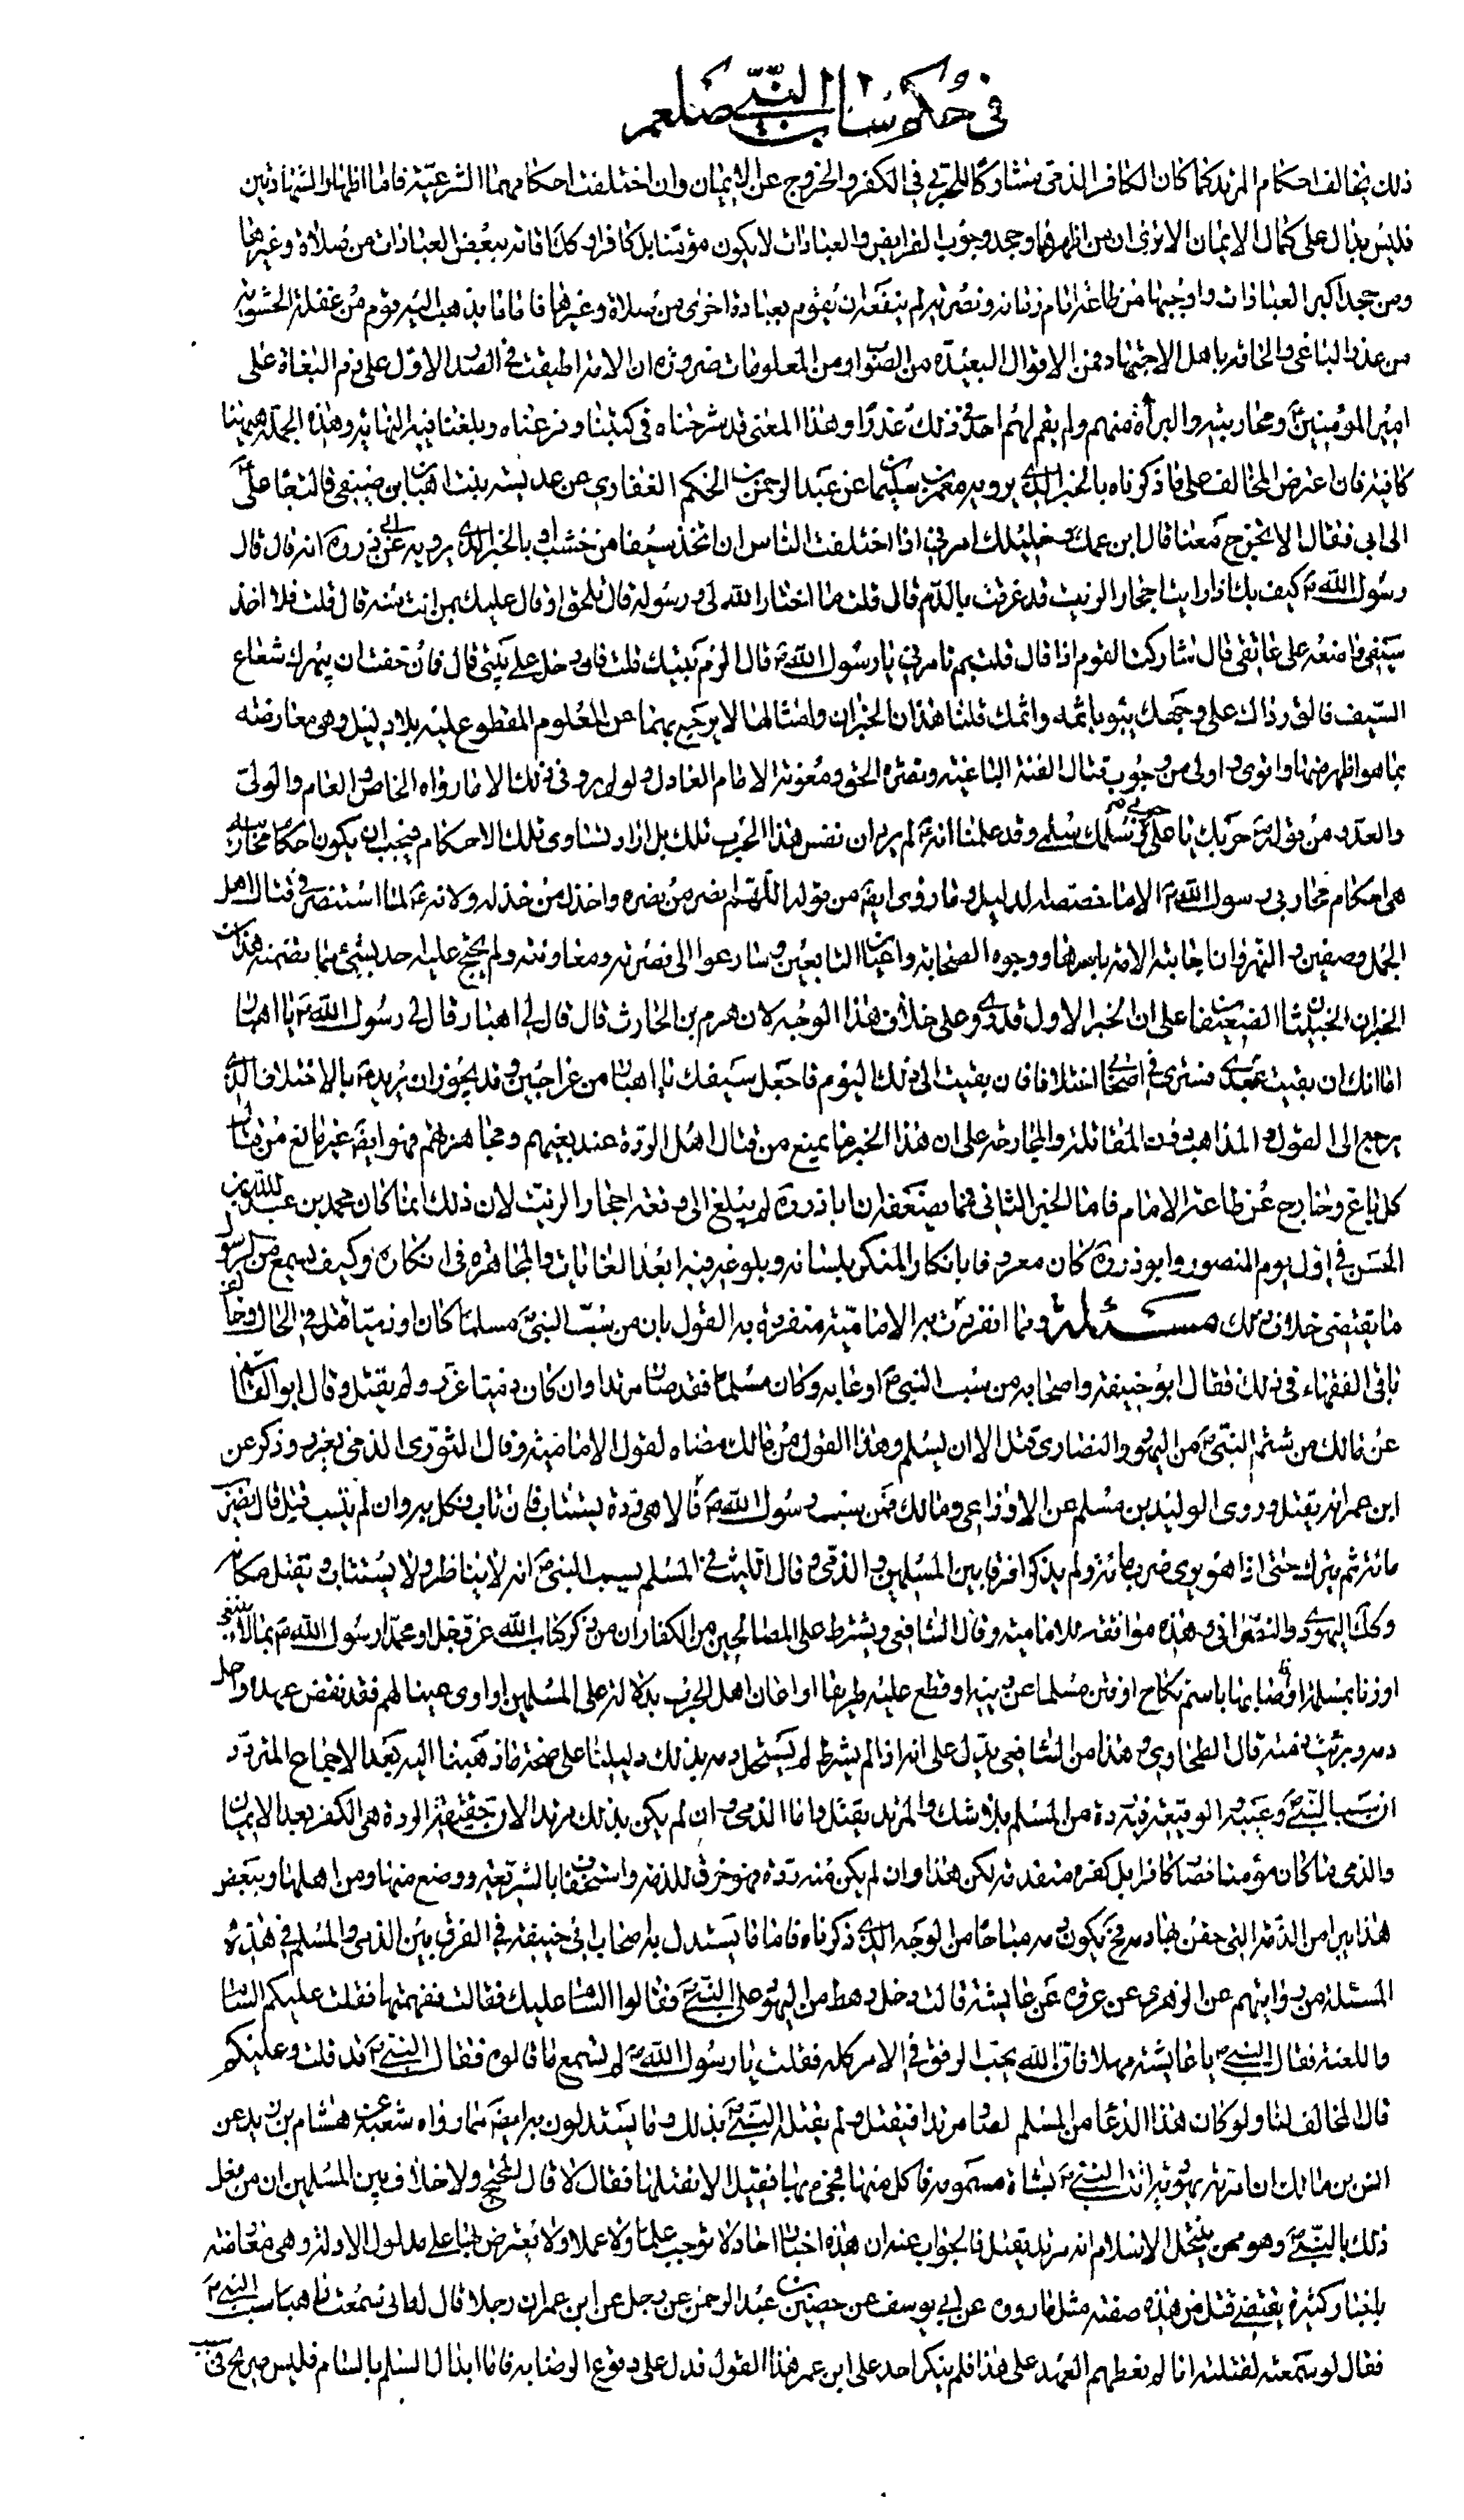 في حكم ساب النبي صلعم
ذلك يخالف احكام المرتد كما كان الكافر الذمي مشاركا للحربي في الكفر والخروج عن الايمان وان اختلفت احكامهما الشرعية فاما اظهار الشهادتين
فليس بدال على كمال الايمان الا ترى ان من اظهرهما وجحد وجوب الفرايض والعبادات لا يكون مؤمنا بل كافرا وكك اقامة بعض العبادات من صلاة وغيرها
ومن جحد اكبر العبادات واوجبها من طاعة امام زمانه ونصرته لم ينفعه ان يقوم بعبادة اخرى من صلاة وغيرها فاما ما يذهب اليه قوم من غفلة الحشوية
من عذر الباغي والحاقه باهل الاجتهاد فمن الاقوال البعيدة من الصواب ومن المعلومات ضرورة ان الامة اطبقت في الصدر الاول على ذم البغاة على
امير المؤمنين ع ومحاربته والبراءة منهم ولم يقم لهم احد في ذلك عذرا وهذا المعنى قد شرحناه في كتبنا وفرعناه وبلغنا فيه النهاية وهذه الجملة هيهنا
كافية فان اعترض المخالف على ما ذكرناه بالخبر الذي يرويه معمر بن سليمان عن عبد الرحمن بن الحكم الغفاري عن عديسة بنت اهبان بن صيفي قالت جاء علي ع
الى ابي فقال الا تخرج معنا قال ابن عمك وخليلك امرني اذا اختلفت الناس ان اتخذ سيفا من خشب او بالخبر الذي يرويه عن ابي ذر ره انه قال قال
رسول الله ص كيف بك اذا رايت احجار الزيت قد غرقت بالدم قال قلت ما اختار الله لي ورسوله قال تلحق او قال عليك بمن انت منه قال قلت افلا اخذ
سيفي واضعه على عاتقي قال شاركت القوم اذا قال قلت بم تامرني يا رسول الله ص قال الزم بيتك قلت فان دخل علي بيتي قال فان خفت ان يبهرك شعاع
السيف فالق رداك على وجهك يبوء باثمه واثمك قلنا هذان الخبران وامثالهما لا يرجع بهما عن المعلوم المقطوع عليه بلا دليل وهي معارضة
بما هو اظهر منها واقوى واولى من وجوب قتال الفئة الباغية ونصرة الحق ومعونة الامام العادل ولو لم يرو في ذلك الا ما رواه الخاص والعام والولي
والعدو من قوله ص حربك يا علي حربي وسلمك سلمي وقد علمنا انه ص لم يرد ان نفس هذا الحرب تلك بل اراد تساوي تلك الاحكام فيجب ان يكون احكام محاربيه
هي احكام محاربي رسول الله ص الا ما خصصه الدليل وما روى ايضا من قوله اللهم انصر من نصره واخذل من خذله ولانه ع لما استنصر في قتال اهل
الجمل وصفين والنهروان اجابته الامة باسرها ووجوه الصحابة واعيان التابعين وسارعوا الى نصرته ومعاونته ولم يحتج عليه احد بشيء مما تضمنه هذان
الخبران الخبيثان الضعيفان على ان الخبر الاول قد روي على خلاف هذا الوجه لان هرم بن الحارث قال قال لي اهبان قال لي رسول الله ص يا اهبان
اما انك ان بقيت بعدي فسترى في اصحابي اختلافا فان بقيت الى ذلك اليوم فاجعل سيفك يا اهبان من عراجين وقد يجوز ان يريد ص بالاختلاف الذي
يرجع الى القول والمذاهب دون المقاتلة والمحاربة على ان هذا الخبر ما يمنع من قتال اهل الردة عند بغيهم ومجاهرتهم فهو ايضا غير مانع من قتال
كل باغ وخارج عن طاعة الامام فاما الخبر الثاني فما يضعفه ان اباذر ره لم يبلغ الى وقعة احجار الزيت لان ذلك انما كان محمد بن عبد الله بن
الحسن في اول يوم المنصور وابو ذر ره كان معروفا بانكار المنكر بلسانه وبلوغه فيه ابعد الغايات والمجاهرة في انكاره وكيف يسمع من الرسول
ما يقتضي خلاف ذلك مسئلة ومما انفردت به الامامية منفردة به القول بان من سب النبي ص مسلما كان او ذميا قتل في الحال وخالف
باقي الفقهاء في ذلك فقال ابو حنيفة واصحابه من سب النبي ص او عابه وكان مسلما فقد صار مرتدا وان كان ذميا عزر ولم يقتل وقال ابو القاسم
عن مالك من شتم النبي ص من اليهود والنصارى قتل الا ان يسلم وهذا القول من مالك مضاه لقول الامامية وقال الثوري الذمي يعزر وذكر عن
ابن عمر انه يقتل وروى الوليد بن مسلم عن الاوزاعي ومالك فمن سب رسول الله ص قالا هي ردة يستتاب فان تاب نكل به وان لم يتب قتل قال يضرب
مائة ثم يترك حتى اذا هو بري ضرب مائة ولم يذكر فرقا بين المسلمين والذمي وقال الليث في المسلم يسب النبي ص انه لا يناظر ولا يستتاب ويقتل مكانه
وكك اليهودي والنصراني وهذه موافقة للامامية وقال الشافعي ويشترط على المصالحين من الكفار ان من ذكر كتاب الله عز وجل او محمدا رسول الله ص بما لا ينبغي
او زنا بمسلمة او اصابها باسم نكاح او فتن مسلما عن دينه او قطع عليه طريقا او اعان اهل الحرب بدلالة على المسلمين او اوى عينا لهم فقد نقض عهده واحل
دمه وبرئت ذمته قال الطحاوي وهذا من الشافعي يدل على انه اذا لم يشرط لم يستحل دمه بذلك دليلنا على صحة ما ذهبنا اليه بعد الاجماع المتردد
ان سب النبي ص وعيبه والوقيعة فيه ردة من المسلم بلا شك والمرتد يقتل واما الذمي وان لم يكن بذلك مرتدا لان حقيقة الردة هي الكفر بعد الايمان
والذمي ما كان مؤمنا فصار كافرا بل كفره متقدم لكن هذا وان لم يكن منه ردة فهو خرق للذمة واستخفاف بالشريعة ووضع منها ومن اهلها وببعض
هذا يبرا من الذمة التي حقن بها دمه فح يكون دمه مباحا من الوجه الذي ذكرناه فاما ما يستدل به اصحاب ابي حنيفة في الفرق بين الذمي والمسلم في هذه
المسئلة من روايتهم عن الزهري عن عروة عن عايشة قالت دخل رهط من اليهود على النبي ص فقالوا السام عليك فقالت ففهمتها فقلت عليكم السام
واللعنة فقال النبي ص يا عايشة مهلا فان الله يحب الرفق في الامر كله فقلت يا رسول الله ص الم تسمع ما قالوه فقال النبي ص قد قلت وعليكم
قال المخالف لنا ولو كان هذا الدعاء من المسلم لصار مرتدا فيقتل ولم يقتله النبي ص بذلك وما يستدلون به ايضا مما رواه شعبة عن هشام بن زيد عن
انس بن مالك ان امراة يهودية اتت النبي ص بشاة مسمومة فاكل منها فجيء بها فقيل الا نقتلها فقال لا قال المحتج ولا خلاف بين المسلمين ان من فعل
ذلك بالنبي ص وهو ممن ينتحل الاسلام انه مرتد يقتل فالجواب عنه ان هذه اخبار احاد لا توجب علما ولا عملا ولا يعترض بها على مدلول الادلة وهي معارضة
باخبار كثيرة يقتضي قتل من هذه صفته مثل ما رووه عن ابي يوسف عن حصين بن عبد الرحمن عن رجل عن ابن عمر ان رجلا قال له اني سمعت راهبا سب النبي ص
فقال لو سمعته لقتلته انا لم نعطهم العهد على هذا فلم ينكر احد على ابن عمر هذا القول فدل على وقوع الرضا به فاما ابدال السلم بالسام فليس صريح في سب